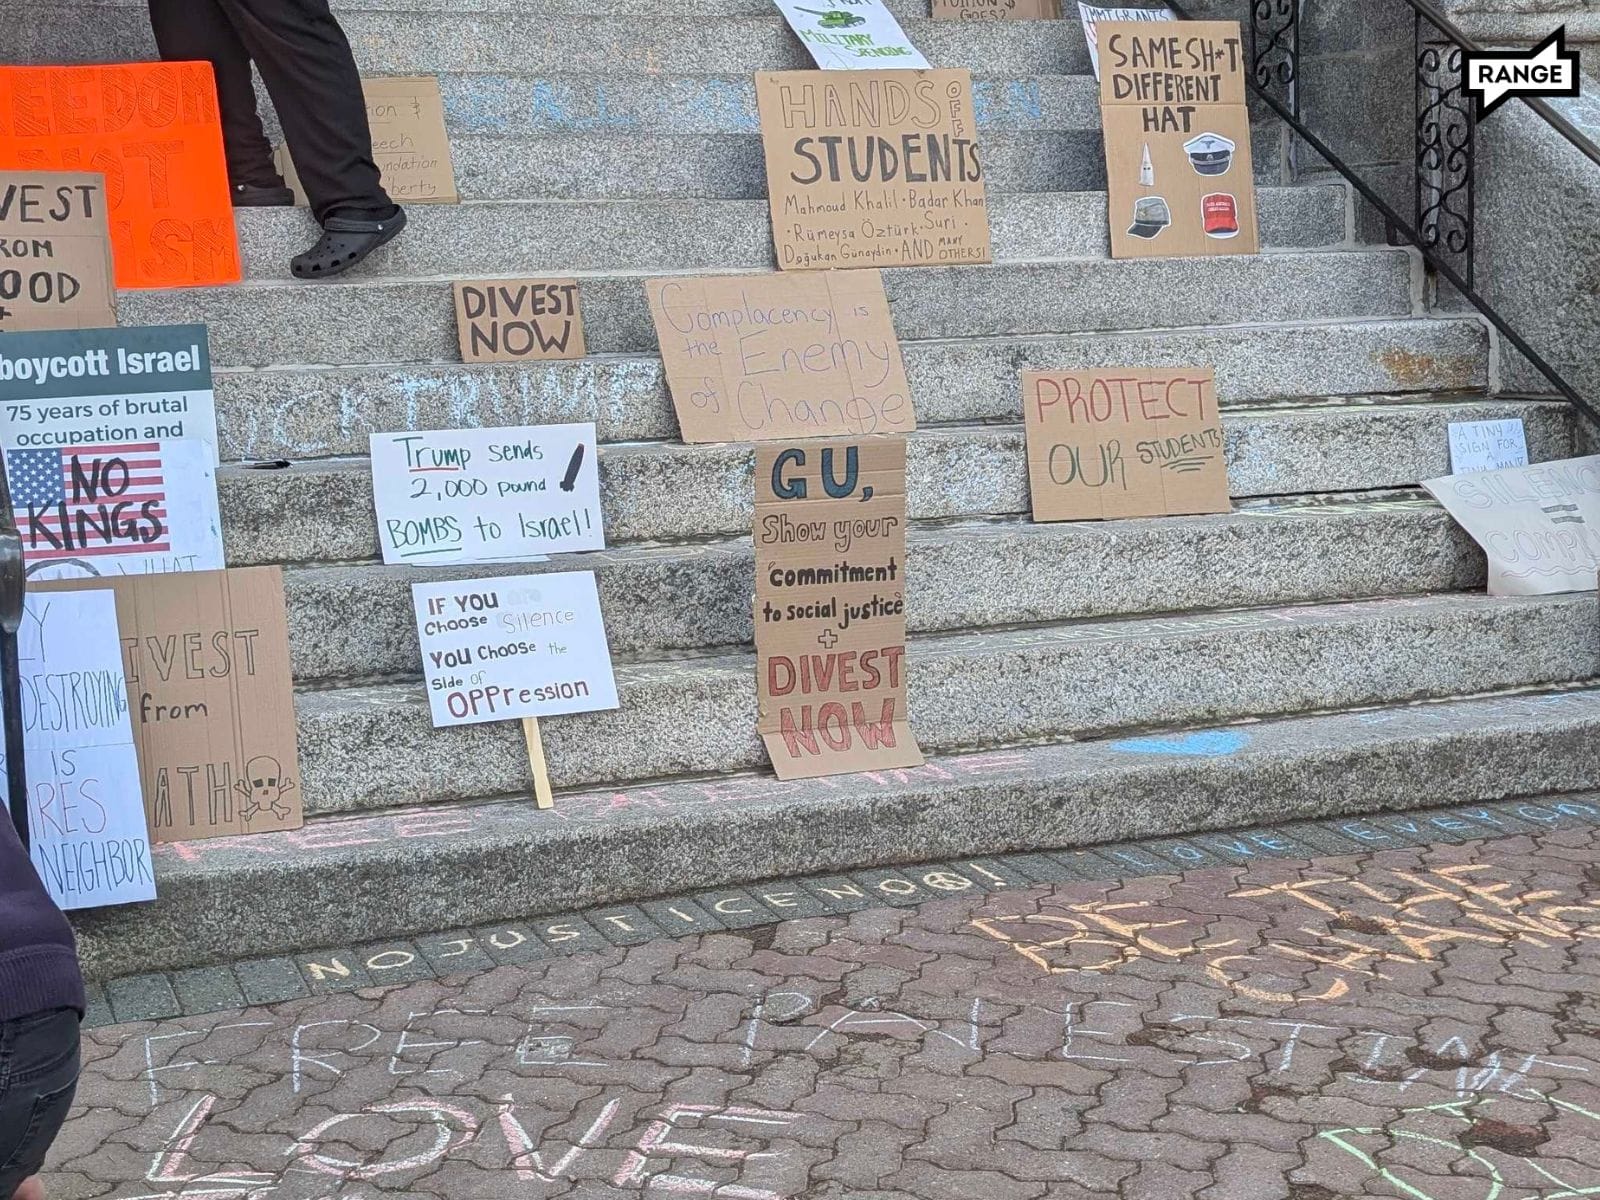 RANGE
MILITARY
SPENDING
GOES?
IMMIGRANTS
SAME SH*T
DIFFERENT
HAT
HANDS OFF
STUDENTS
Mahmoud Khalil • Badar Khan
Suri •
• Rümeysa Öztürk •
Doğukan Günaydin • AND MANY OTHERS!
EEDOM
NOT
ISM
ion &
eech
undation
iberty
VEST
ROM
OOD
+
DIVEST
NOW
Complacency is
the Enemy
of Change
boycott Israel
75 years of brutal
occupation and
NO
KINGS
WHAT
Trump sends
2,000 pound
BOMBS to Israel!
PROTECT
OUR STUDENTS!
A TINY
SIGN FOR
A
TINY MAN
SILENC
=
COMPL
GU,
Show your
commitment
to social justice
+
DIVEST
NOW
IF YOU are
Choose Silence
YOU Choose the
Side of
OPPression
IVEST
from
ATH
Y
DESTROYING
IS
RES
NEIGHBOR
FREE PALESTINE
NO JUSTICE NO !
LOVE EVERYONE
BE THE
CHANGE
FREE PALESTINE
LOVE